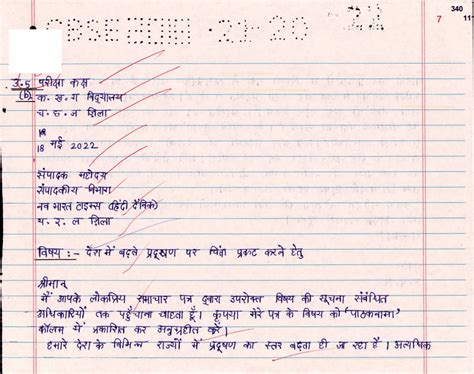 340
7
111
CBSE 21-20 21
उ.5 परीक्षा कक्ष
(b) क. ख. ग विद्यालय
च. छ. ज ज़िला
18
18 मई 2022
संपादक महोदय
संपादकीय विभाग
नव भारत टाइम्स (हिंदी दैनिक)
य. र. ल ज़िला
विषय :- देश में बढ़ते प्रदूषण पर चिंता प्रकट करने हेतु
श्रीमान्
में आपके लोकप्रिय समाचार पत्र द्वारा उपरोक्त विषय की सूचना संबंधित
अधिकारियों तक पहुँचाना चाहता हूँ। कृपया मेरे पत्र के विषय को 'पाठकनामा'
कॉलम में प्रकाशित कर अनुग्रहीत करें।
हमारे देश के विभिन्न राज्यों में प्रदूषण का स्तर बढ़ता ही जा रहा है। अत्यधिक